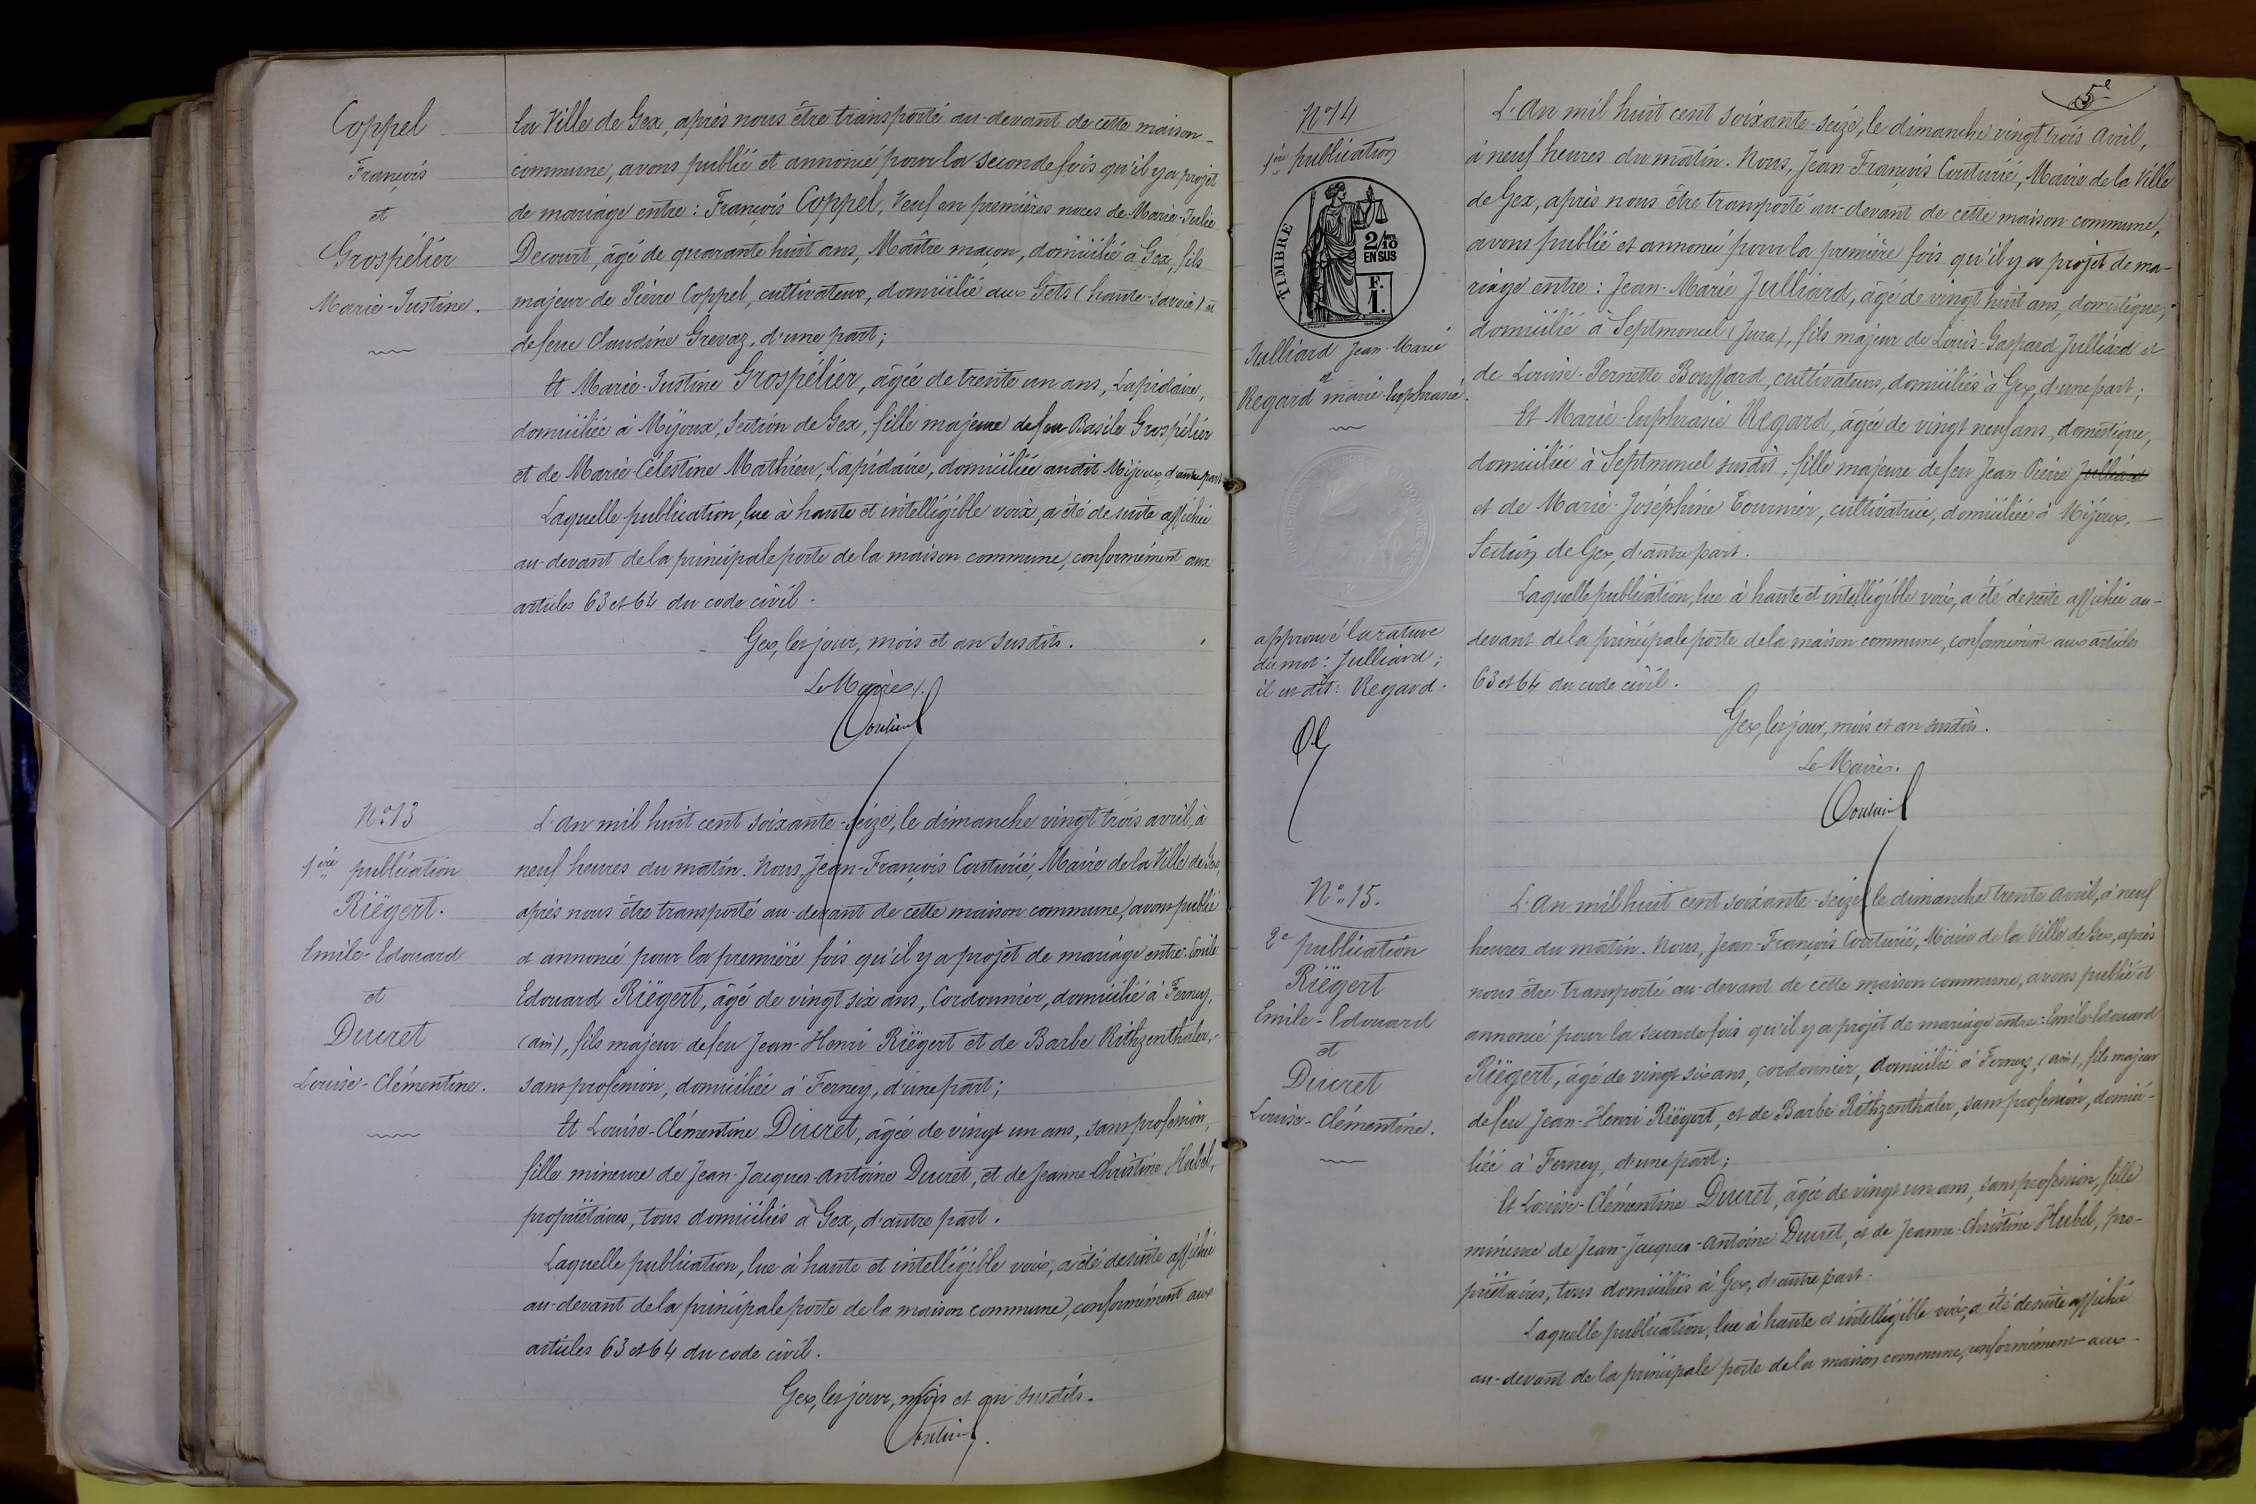 Coppel
François
et
Grospélier
Marie-Justine.
la Ville de Gex, après nous être transporté au-devant de cette maison-
commune, avons publié et annoncé pour la seconde fois qu'il y a projet
de mariage entre : François Coppel, Veuf en premières noces de Marie-Julie
Decourt, âgé de quarante huit ans, Maître maçon, domicilié à Gex, fils
majeur de Pierre Coppel, cultivateur, domicilié aux Gets (haute-savoie) et
de feue Claudine Grevaz, d'une part ;
Et Marie-Justine Grospélier, âgée de trente un ans, Lapidaire,
domiciliée à Mijoux, Section de Gex, fille majeure de feu Basile Grospélier
et de Marie-Célestine Mathieu, Lapidaire, domiciliée audit Mijoux, d'autre part
Laquelle publication, lue à haute et intelligible voix, a été de suite affichée
au-devant de la principale porte de la maison commune, conformément aux
articles 63 et 64 du code civil.
Gex, les jour, mois et an susdits.
Le Maire,
Couturié
N° 13
1ère publication
Riëgert.
Emile-Edouard
et
Ducret
Louise-Clémentine.
L'An mil huit cent soixante-seize, le dimanche vingt trois avril, à
neuf heures du matin. Nous, Jean-François Couturié, Maire de la Ville de Gex,
après nous être transporté au-devant de cette maison commune, avons publié
et annoncé pour la première fois qu'il y a projet de mariage entre : Emile
Edouard Riëgert, âgé de vingt six ans, Cordonnier, domicilié à Ferney,
(ain), fils majeur de feu Jean-Henri Riëgert et de Barbe Rithzenthaler,
sans profession, domiciliée à Ferney, d'une part ;
Et Louise-Clémentine Ducret, âgée de vingt un ans, sans profession,
fille mineure de Jean-Jacques-Antoine Ducret, et de Jeanne-Christine Hubel,
propriétaires, tous domiciliés à Gex, d'autre part.
Laquelle publication, lue à haute et intelligible voix, a été de suite affichée
au-devant de la principale porte de la maison commune, conformément aux
articles 63 et 64 du code civil.
Gex, les jour, mois et an susdits.
Couturié
5e
N° 14
1ère publication
TIMBRE
2/10
EN SUS
F.
1.
Julliard Jean-Marie
et
Regard Marie-Euphrasie.
approuvé la rature
du mot : Julliard ;
il est dit : Regard.
L'An mil huit cent soixante-seize, le dimanche vingt trois Avril,
à neuf heures du matin. Nous, Jean-François Couturié, Maire de la Ville
de Gex, après nous être transporté au-devant de cette maison commune,
avons publié et annoncé pour la première fois qu'il y a projet de ma-
riage entre : Jean-Marie Julliard, âgé de vingt huit ans, domestique,
domicilié à Septmoncel (Jura), fils majeur de Louis-Gaspard Julliard et
de Louise-Pernette Bouffard, cultivateurs, domiciliés à Gex, d'une part ;
Et Marie-Euphrasie Regard, âgée de vingt neuf ans, domestique,
domiciliée à Septmoncel susdit, fille majeure de feu Jean-Pierre Julliard
et de Marie-Joséphine Tournier, cultivatrice, domiciliée à Mijoux,
Section de Gex, d'autre part.
Laquelle publication, lue à haute et intelligible voix, a été de suite affichée au-
devant de la principale porte de la maison commune, conformément aux articles
63 et 64 du code civil.
Gex, les jour, mois et an susdits.
Le Maire.
Couturié
N° 15.
2e publication
Riëgert
Emile-Edouard
et
Ducret
Louise-Clémentine.
L'An mil huit cent soixante-seize, le dimanche trente avril, à neuf
heures du matin. Nous, Jean-François Couturié, Maire de la Ville de Gex, après
nous être transporté au-devant de cette maison commune, avons publié et
annoncé pour la seconde fois qu'il y a projet de mariage entre : Emile-Edouard
Riëgert, âgé de vingt six ans, cordonnier, domicilié à Ferney, (ain), fils majeur
de feu Jean-Henri Riëgert, et de Barbe Rithzenthaler, sans profession, domici-
liée à Ferney, d'une part ;
Et Louise-Clémentine Ducret, âgée de vingt un ans, sans profession, fille
mineure de Jean-Jacques-Antoine Ducret, et de Jeanne-Christine Hubel, pro-
priétaires, tous domiciliés à Gex, d'autre part.
Laquelle publication, lue à haute et intelligible voix, a été de suite affichée
au-devant de la principale porte de la maison commune, conformément aux-